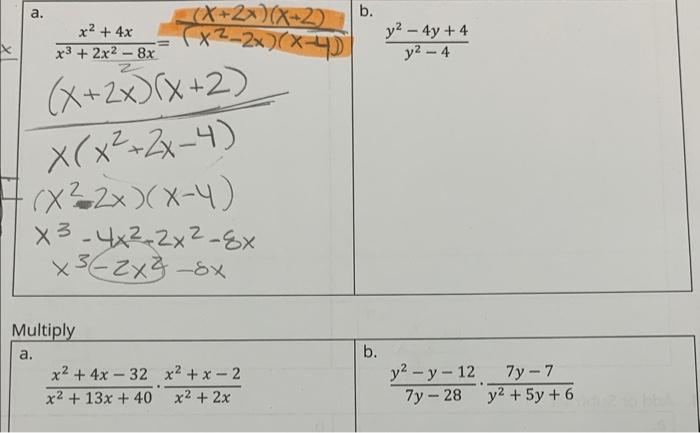 a.
x² + 4x / x³ + 2x² – 8x = (x+2x)(x+2) / (x²-2x)(x-4)
(x+2x)(x+2) / x(x²+2x-4)
(x²-2x)(x-4)
x³ -4x²-2x² -8x
x³-2x² -8x
b.
y² – 4y + 4 / y² – 4
Multiply
a.
x² + 4x – 32 / x² + 13x + 40 · x² + x – 2 / x² + 2x
b.
y² – y – 12 / 7y – 28 · 7y – 7 / y² + 5y + 6